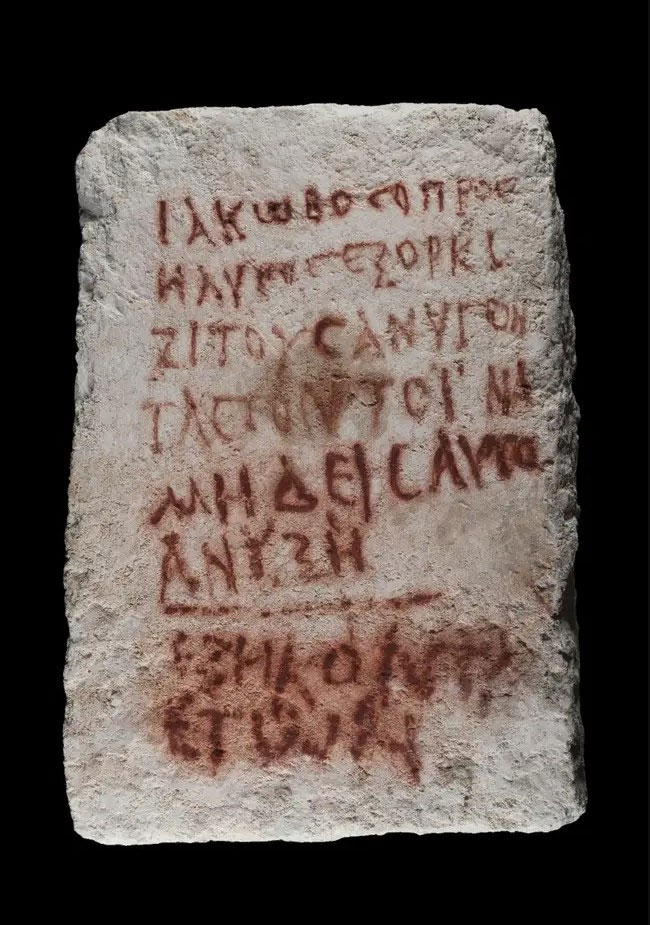 ΙΑΚΩΒΟϹΟΠΡΟϹ
ΗΛΥΤΟϹΕΞΟΡΚΙ
ΖΙΤΟΥϹΑΝΥΓΟΝ
ΤΑϹΤΟΥΤΟΙΝΑ
ΜΗΔΕΙϹΑΥΤΟ
ΑΝΥΞΗ
ΕΞΗΚΟΝΤΑ
ΕΤΩΝ